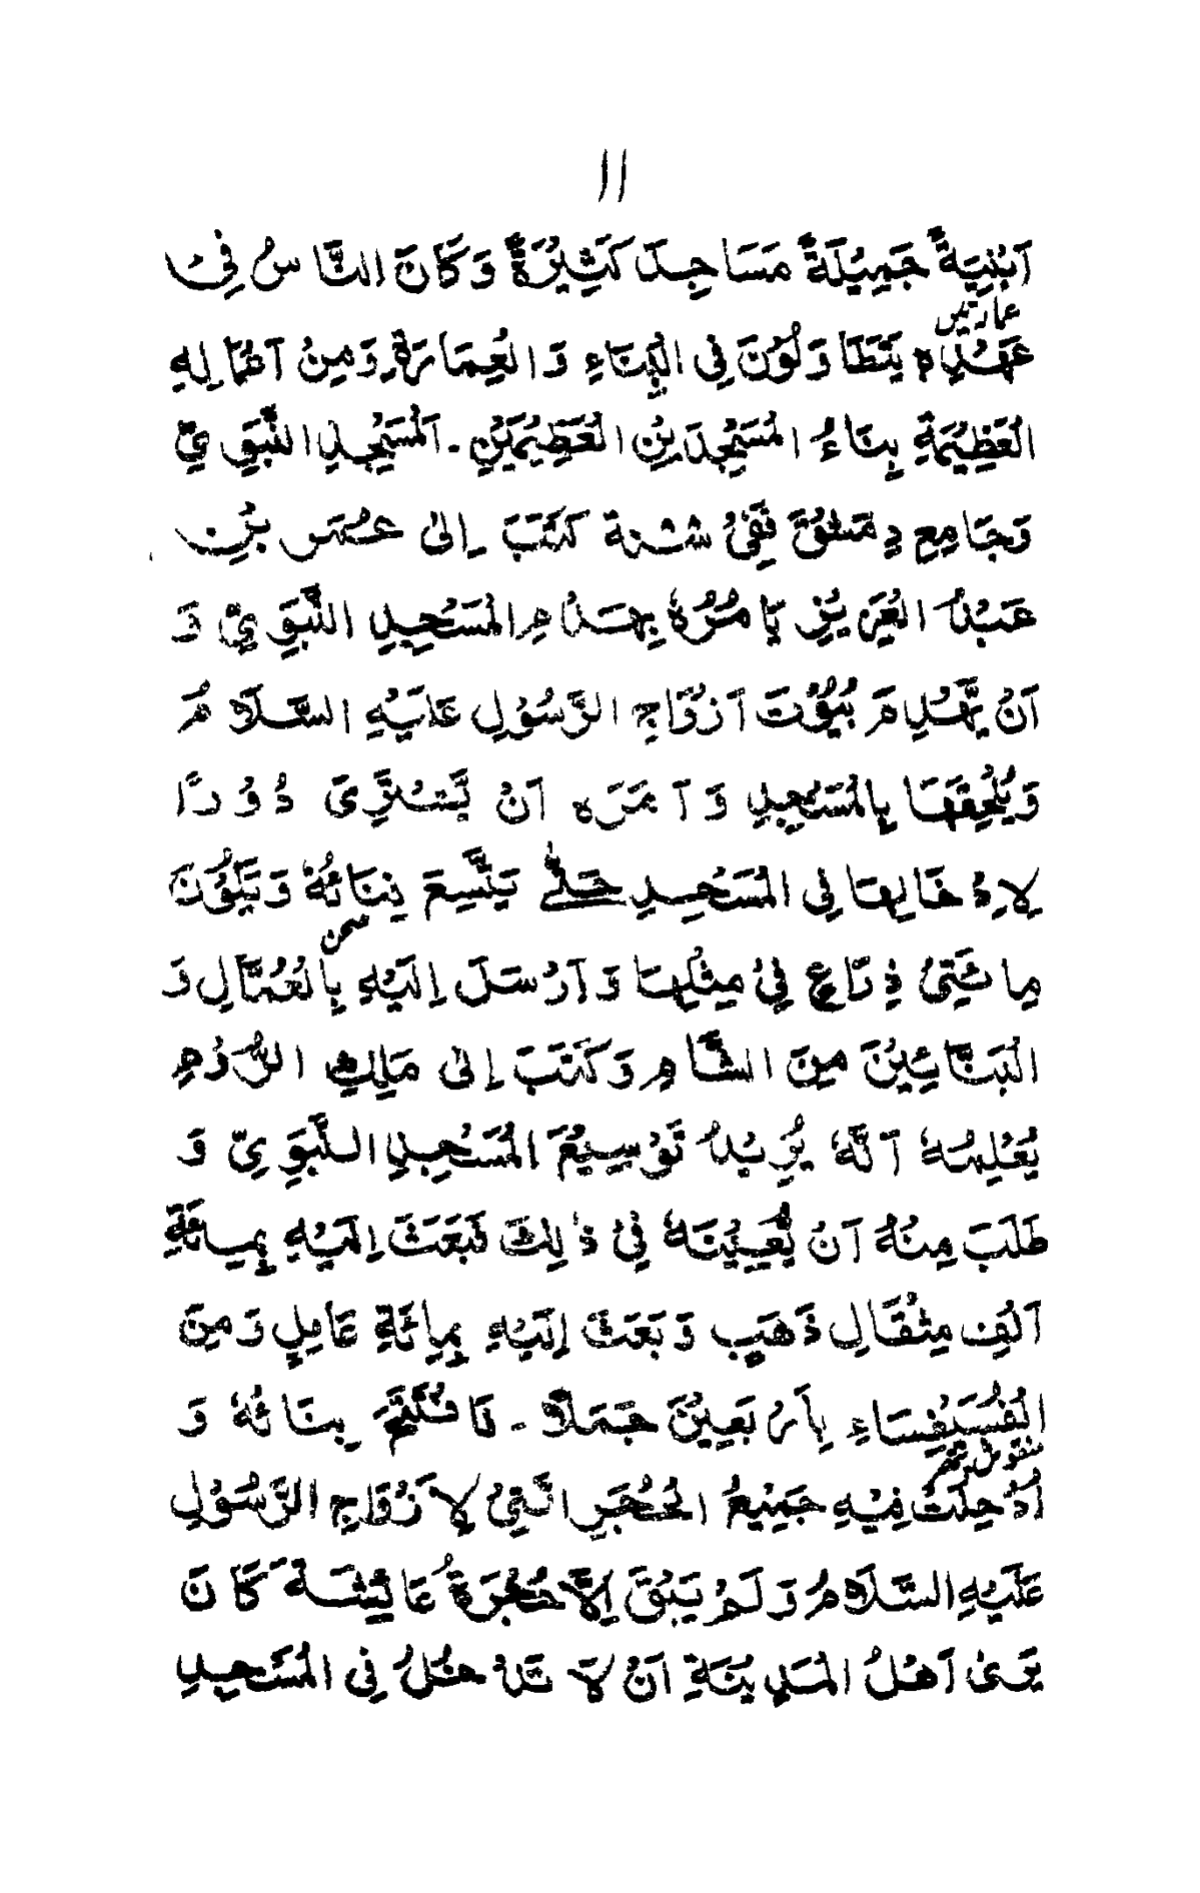 ١١
اَبْنِيَةً جَمِيْلَةً مَسَاجِدَ كَثِيْرَةً وَكَانَ النَّاسُ فِيْ
عمارتیں
عَهْدِهٖ يَتَطَاوَلُوْنَ فِي الْبِنَاءِ وَالْعِمَارَةِ وَمِنْ اَعْمَالِهِ
الْعَظِيْمَةِ بِنَاءُ الْمَسْجِدَيْنِ الْعَظِيْمَيْنِ ۔ اَلْمَسْجِدِ النَّبَوِيِّ
وَجَامِعِ دِمَشْقَ فَفِيْ سنة كَتَبَ اِلٰى عُمَرَ بْنِ
عَبْدِ الْعَزِيْزِ يَأْمُرُهٗ بِهَدْمِ الْمَسْجِدِ النَّبَوِيِّ وَ
اَنْ يَّهْدِمَ بُيُوْتَ اَزْوَاجِ الرَّسُوْلِ عَلَيْهِ السَّلَامُ
وَيُلْحِقَهَا بِالْمَسْجِدِ وَاَمَرَه اَنْ يَّشْتَرِيَ دُوْرًا
لِاِدْخَالِهَا فِي الْمَسْجِدِ حَتّٰى يَتَّسِعَ بِنَائُهٗ وَيَكُوْنَ
صحن
مِائَتَيْ ذِرَاعٍ فِيْ مِثْلِهَا وَاَرْسَلَ اِلَيْهِ بِالْعُمَّالِ وَ
الْبَنَّائِيْنَ مِنَ الشَّامِ وَكَتَبَ اِلٰى مَلِكِ الرُّوْمِ
يُعْلِمُهٗ اَنَّهٗ يُرِيْدُ تَوْسِيْعَ الْمَسْجِدِ النَّبَوِيِّ وَ
طَلَبَ مِنْهُ اَنْ يُّعِيْنَهٗ فِيْ ذٰلِكَ فَبَعَثَ اِلَيْهِ بِمِائَةِ
اَلْفِ مِثْقَالِ ذَهَبٍ وَبَعَثَ اِلَيْهِ بِمِائَةِ عَامِلٍ وَمِنَ
الْفُسَيْفِسَاءِ بِاَرْبَعِيْنَ جَمَلًا ۔ فَافْتَتَحَ بِنَائَهٗ وَ
اُدْخِلَتْ فِيْهِ جَمِيْعُ الْحُجَرِ الَّتِيْ لِاَزْوَاجِ الرَّسُوْلِ
عَلَيْهِ السَّلَامُ وَلَمْ يَبْقَ اِلَّا حُجْرَةُ عَائِشَةَ كَانَ
يَرٰى اَهْلُ الْمَدِيْنَةِ اَنْ لَا تَدْخُلَ فِي الْمَسْجِدِ